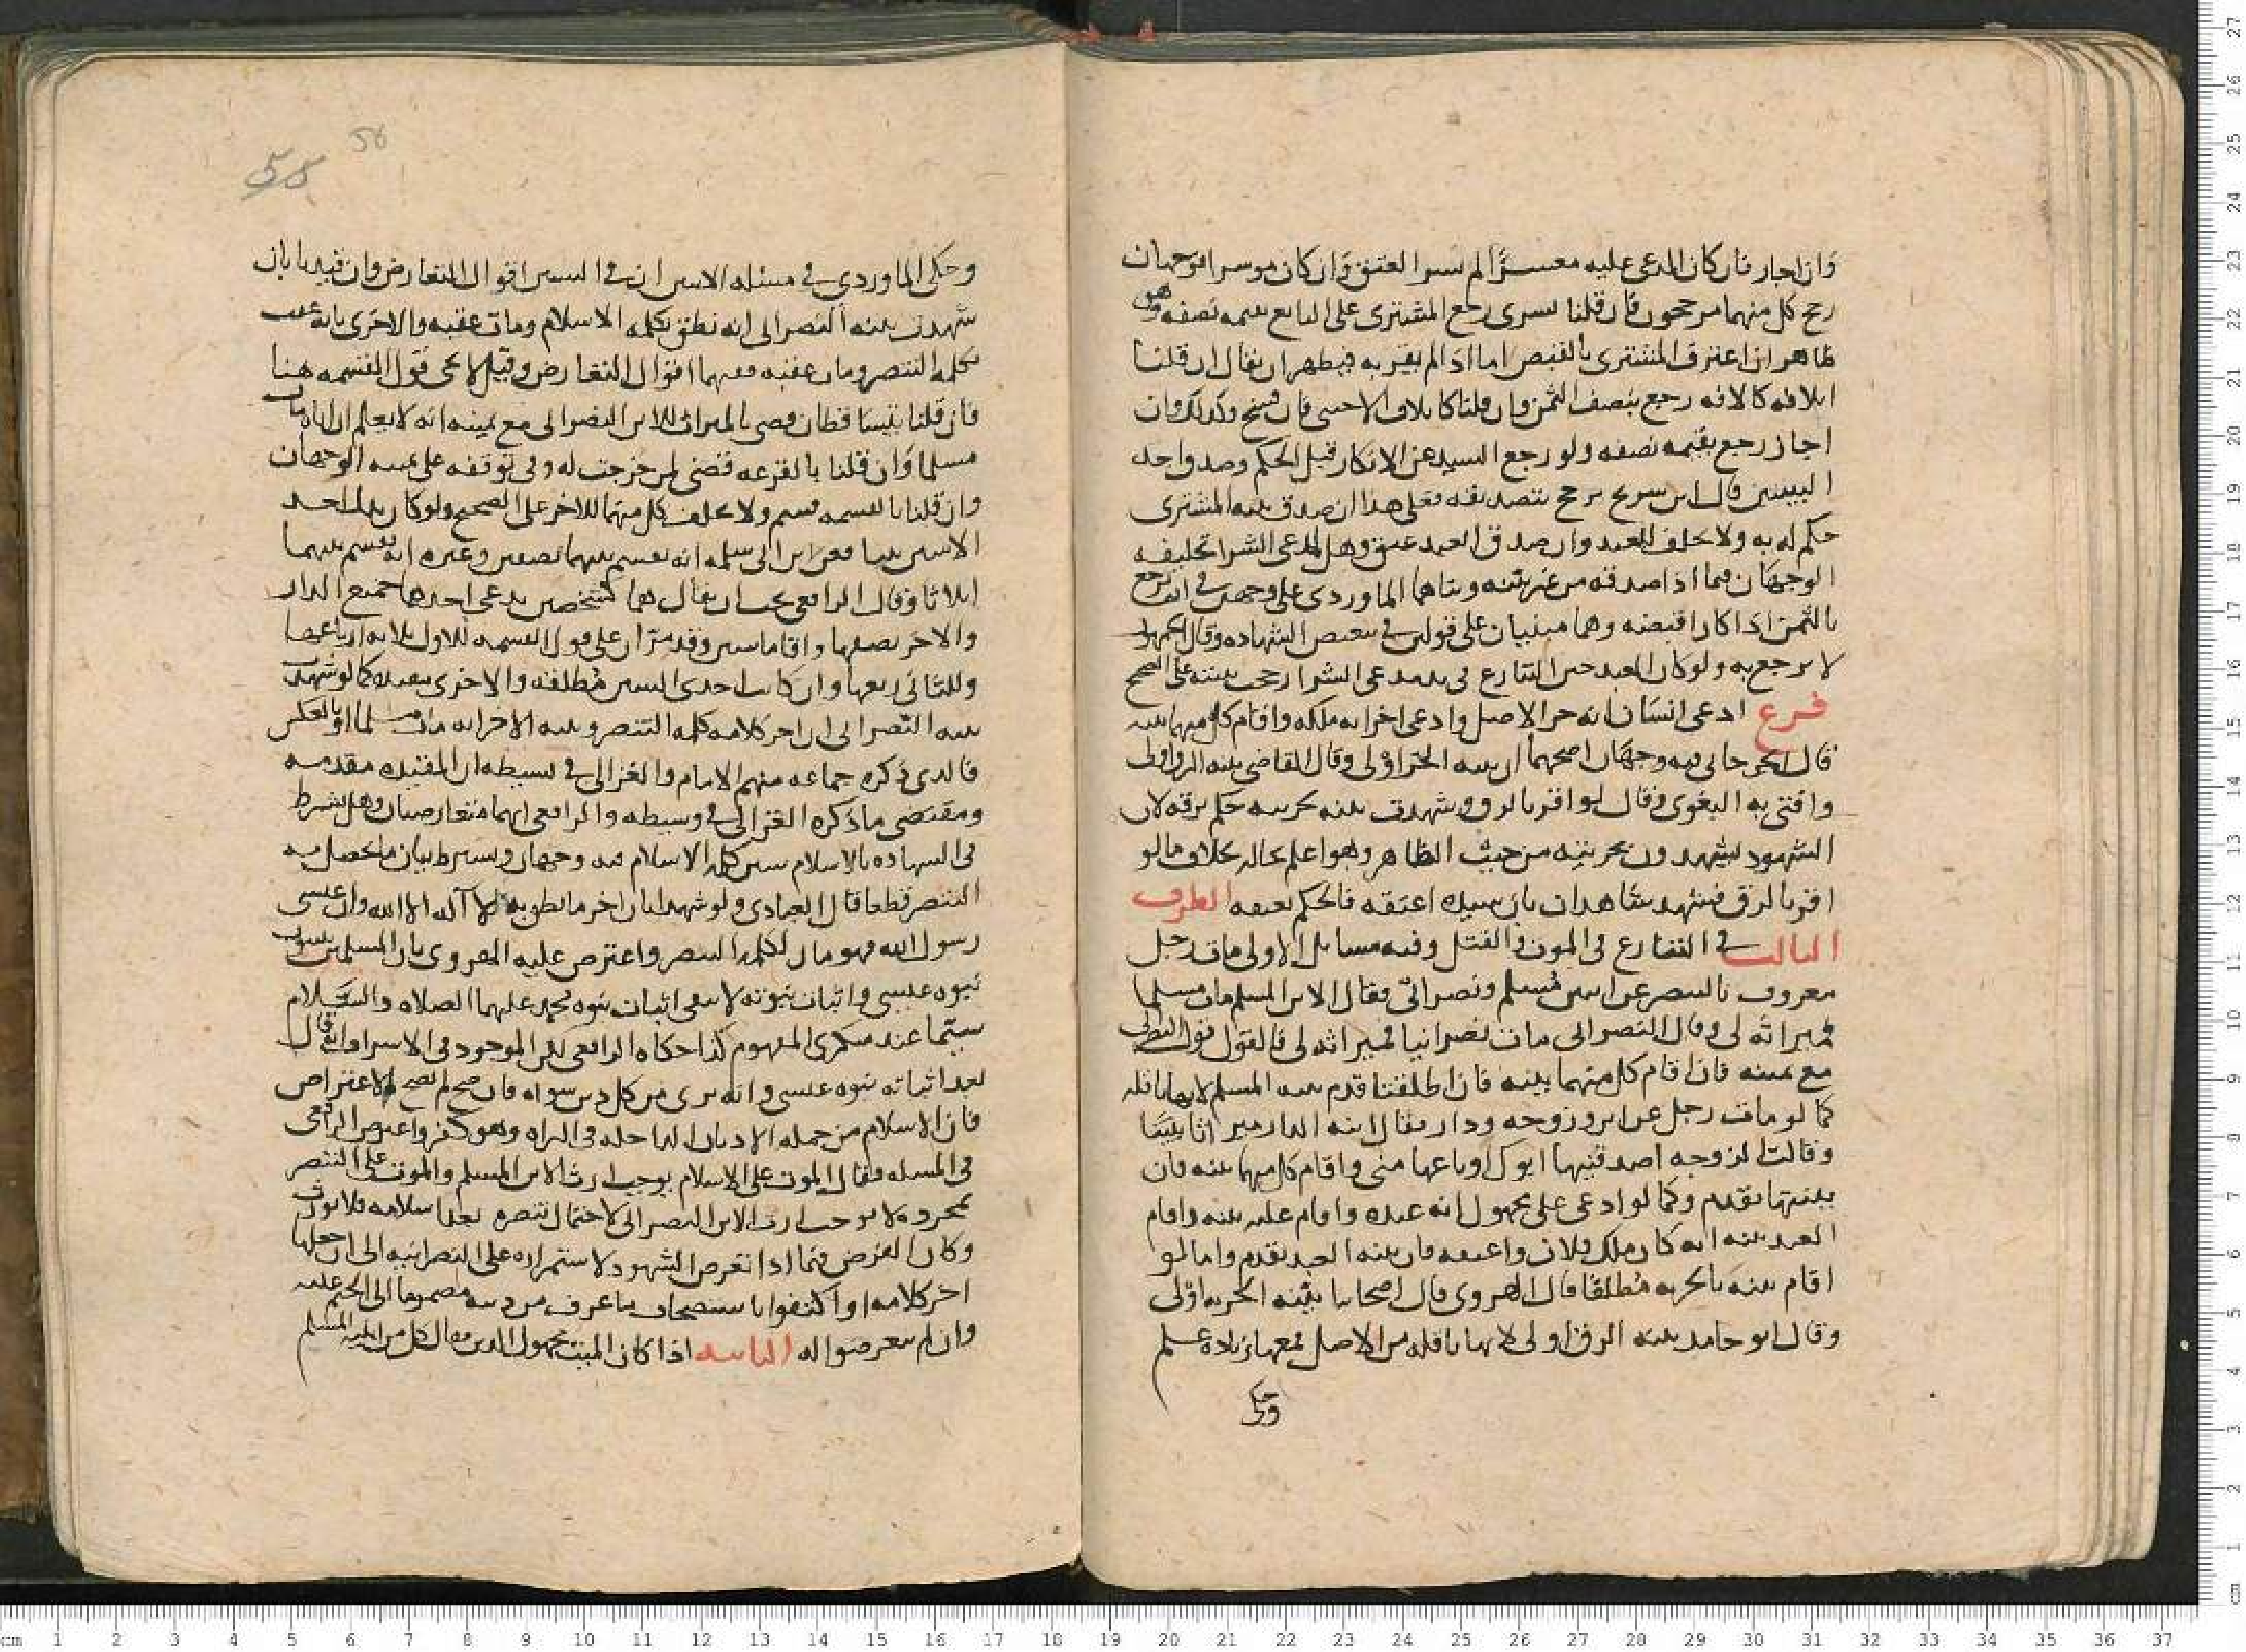 وان اجاز فان كان المدعى عليه معسرا لم يسر العتق وان كان موسرا فوجهان
رجح كل منهما مرجحون فان قلنا يسرى رجع المشترى على البايع بقيمه نصفه وهو
ظاهر ان اعترف المشترى بالقبض اما اذا لم يقر به فيظهر ان يقال ان قلنا
اتلافه كالافه رجع بنصف الثمن وان قلنا كاتلاف الاجنبى فان فسخ وكذلك وان
اجاز رجع بقيمه نصفه ولو رجع السيد عن الانكار قبل الحكم وصدق احد
البينتين قال ابن سريج يرجح بتصديقه فعلى هذا ان صدق بينه المشترى
حكم له به ولا يحلف للعبد وان صدق العبد عتق وهل لمدعى الشرا تحليفه
الوجهان فيما اذا صدقه من غير بينه وبناهما الماوردى على وجهين فى انه يرجع
بالثمن اذا كان اقبضه وهما مبنيان على قولين فى تبعيض الشهاده وقال الجمهور
لا يرجع به ولو كان العبد حين التنازع فى يد مدعى الشرا رجحت بينته على الصحيح
فرع ادعى انسان انه حر الاصل وادعى اخر انه ملكه واقام كل منهما بينه
قال الجرجانى فيه وجهان اصحهما ان بينه الحر اولى وقال القاضى بينه الرق اولى
وافتى به البغوى وقال لو اقر بالرق وشهدت بينه بحريته حكم برقه لان
الشهود يشهدون بحريته من حيث الظاهر وهو اعلم بحاله بخلاف ما لو
اقر بالرق فشهد شاهدان بان سيده اعتقه فالحكم بعتقه الطرف
الثالث فى التنازع فى الموت والقتل وفيه مسايل الاولى مات رجل
معروف بالتنصر عن ابنين مسلم ونصرانى فقال الابن المسلم مات مسلما
فميراثه لى وقال النصرانى مات نصرانيا فميراثه لى فالقول قول النصرانى
مع يمينه فان اقام كل منهما بينه فان اطلقتا قدم بينه المسلم لانها ناقله
كما لو مات رجل عن ابن وزوجه ودار فقال ابنه الدار ميراثا بيننا
وقالت الزوجه اصدقنيها ابوك او باعها منى واقام كل منهما بينه فان
بينتها تقدم وكما لو ادعى على مجهول انه عبده واقام عليه بينه واقام
العبد بينه انه كان ملك فلان واعتقه فان بينه العبد تقدم واما لو
اقام بينه بالحريه مطلقا قال الهروى قال اصحابنا بينه الحريه اولى
وقال ابو حامد بينه الرق اولى لانها ناقله من الاصل فمعها زياده علم
وحكى
56
55
وحكى الماوردى فى مسئله الابنين ان فى البينتين اقوال التعارض وان قيدتا بان
شهدت بينه النصرانى انه نطق بكلمه الاسلام ومات عقبه والاخرى بانه
بكلمه التنصر ومات عقبه ففيهما اقوال التعارض وقيل لا يجى قول القسمه هنا
فان قلنا بتساقطان قضى بالميراث للابن النصرانى مع يمينه انه لا يعلم ان اباه مات
مسلما وان قلنا بالقرعه قضى لمن خرجت له وفى توقفه على يمينه الوجهان
وان قلنا بالقسمه قسم ولا يحلف كل منهما للاخر على الصحيح ولو كان بدل احد
الابنين بنتا فعن ابن ابى سلمه انه يقسم بينهما نصفين وغيره انه يقسم بينهما
اثلاثا وقال الرافعى يجب ان يقال هما كشخصين يدعى احدهما جميع الدار
والاخر نصفها واقاما بينتين وقد مر ان على قول القسمه للاول ثلاثه ارباعها
وللثانى ربعها وان كانت احدى البينتين مطلقه والاخرى مقيده كما لو شهدت
بينه النصرانى ان اخر كلامه كلمه التنصر وبينه الاخر انه مات مسلما او بالعكس
فالذى ذكره جماعه منهم الامام والغزالى فى بسيطه ان المقيده مقدمه
ومقتضى ما ذكره الغزالى فى وسيطه والرافعى انهما متعارضتان وهل يشترط
فى الشهاده بالاسلام تبيين كلمه الاسلام فيه وجهان ويشترط بيان ما يحصل به
التنصر قطعا قال العبادى ولو شهدا بان اخر ما نطق به لا اله الا الله وان عيسى
رسول الله فهو مات لكلمه التنصر واعترض عليه الهروى بان المسلمين يثبتون
نبوه عيسى واثبات نبوته لا ينفى اثبات نبوه محمد عليهما الصلاه والسلام
سيما عند منكرى المفهوم كذا حكاه الرافعى لكن الموجود فى الاسراف انه قال
بعد اثباته نبوه عيسى وانه برى من كل دين سواه فان صح لم يصح الاعتراض
فان الاسلام من جمله الاديان الداخله فى البراه وهو كفر واعترض الرافعى
فى المسله فقال الموت على الاسلام يوجب ارث الابن المسلم والموت على التنصر
بمجرده لا يوجب ارث الابن النصرانى لاحتمال تنصره بعد اسلامه فلا يورث
وكان الغرض فيما اذا تعرض الشهود لاستمراره على النصرانيه الى ان جعلها
اخر كلامه او اكتفوا باستصحاب ما عرف من دينه مضموما الى الحكم عليه
وان لم يتعرضوا له الثانيه اذا كان الميت مجهول الدين فقال كل من ابنيه المسلم